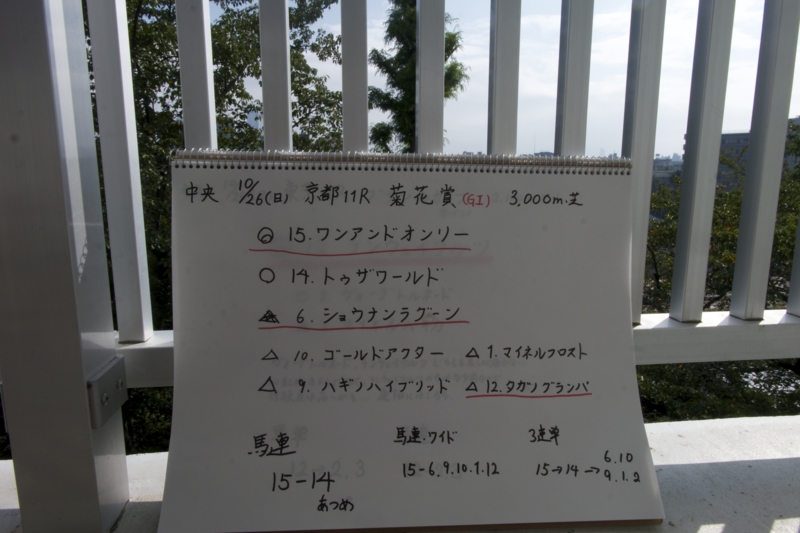 中央 10/26(日) 京都11R 菊花賞(GI) 3,000m.芝
◎ 15. ワンアンドオンリー
○ 14. トゥザワールド
▲ 6. ショウナンラグーン
△ 10. ゴールドアクター △ 1. マイネルフロスト
△ 9. ハギノハイブリッド △ 12. タガノグランパ
馬連 馬連.ワイド 3連単
15-14 15-6.9.10.1.12 15→14→ 6.10
9.1.2
あつめ